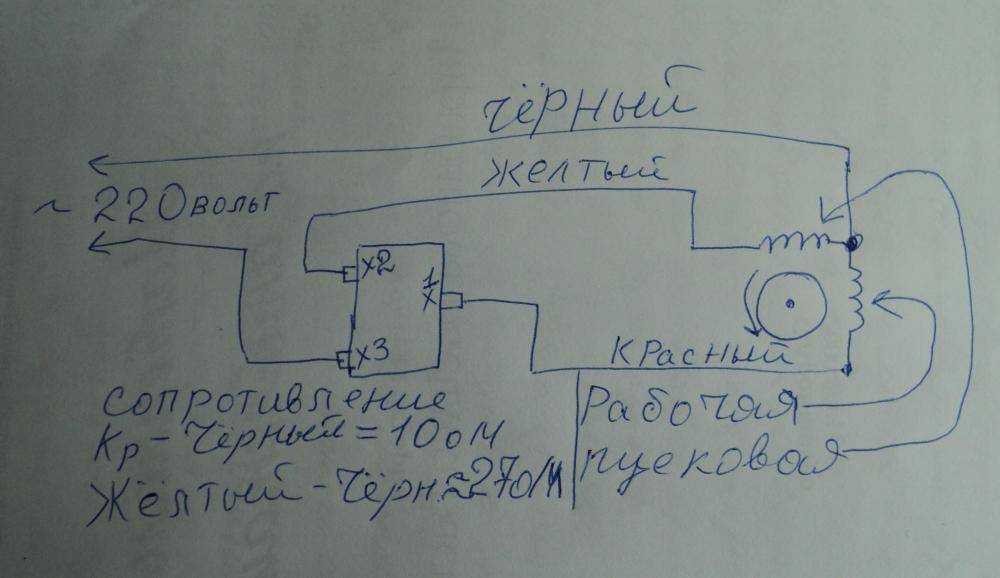 чёрный
желтый
~ 220вольт
x2
1
x
x3
красный
сопротивление
Кр-чёрный=10ом
Жёлтый-чёрн.≈27ом
Рабочая
пусковая